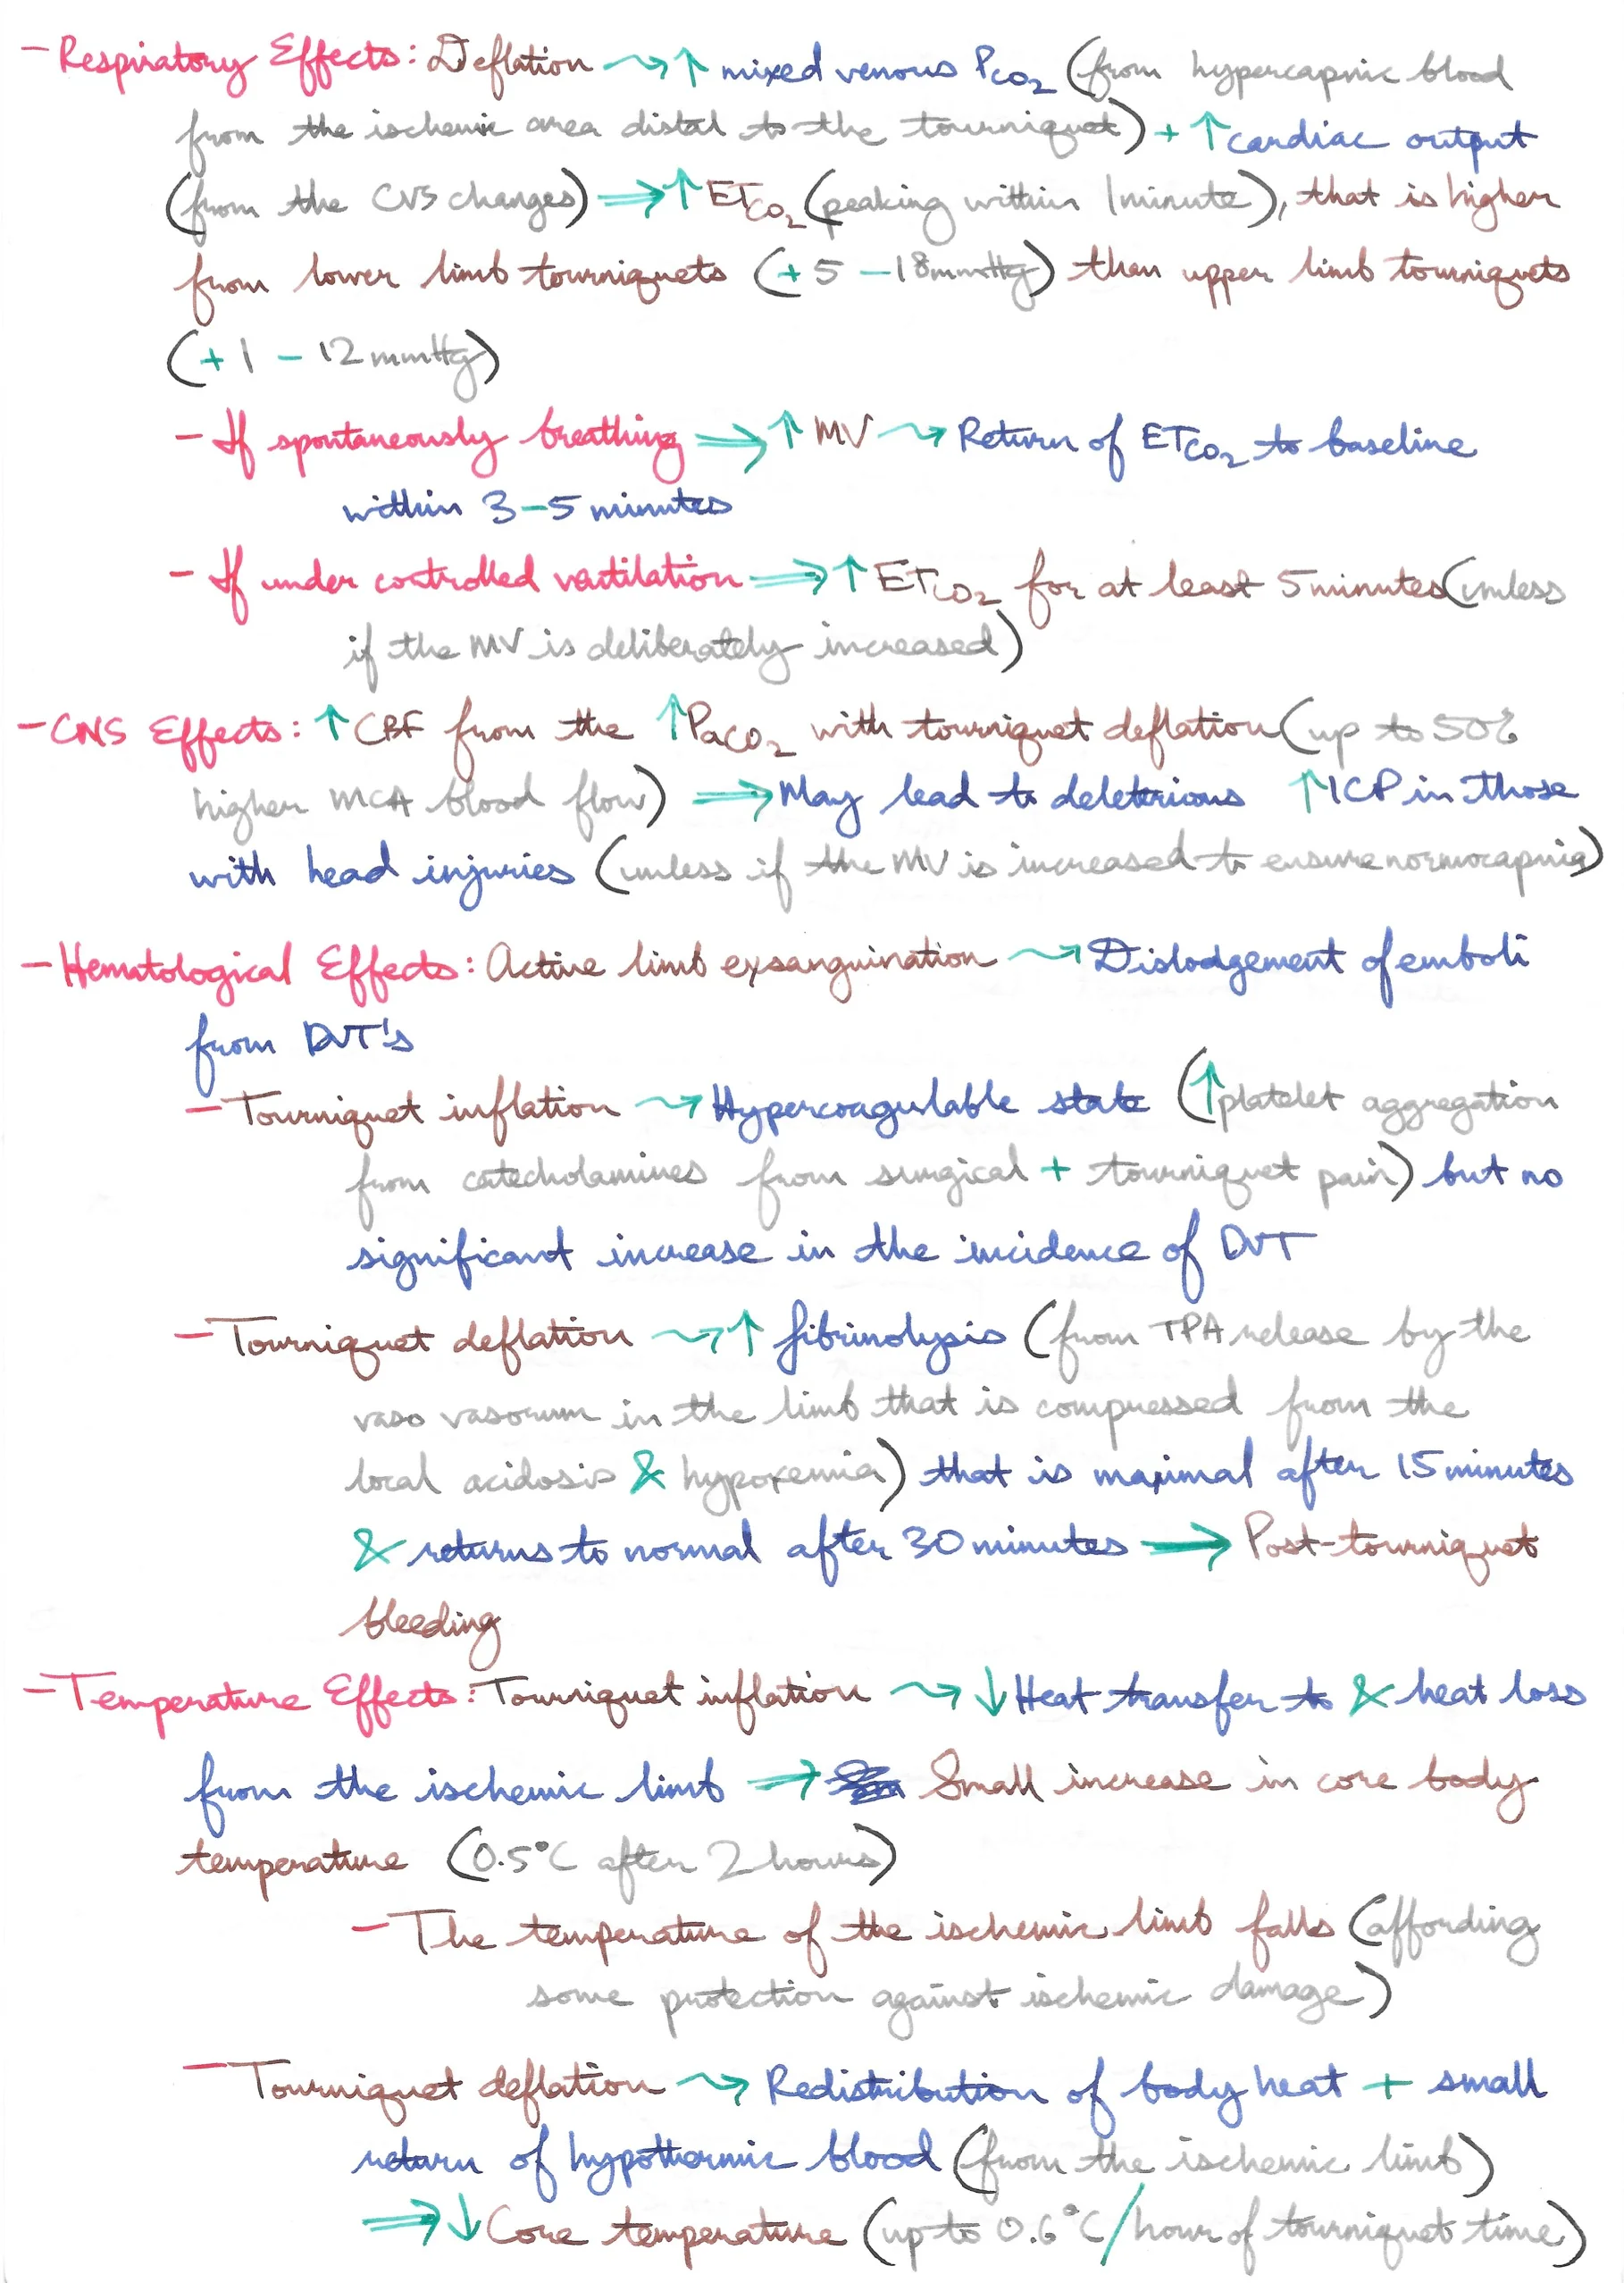 - Respiratory Effects: Deflation ⇝ ↑ mixed venous PCO2 (from hypercapnic blood
from the ischemic area distal to the tourniquet) + ↑ cardiac output
(from the CVS changes) ⇒ ↑ ETCO2 (peaking within 1 minute), that is higher
from lower limb tourniquets (+5 – 18 mmHg) than upper limb tourniquets
(+1 – 12 mmHg)
- If spontaneously breathing ⇒ ↑ MV ⇝ Return of ETCO2 to baseline
within 3–5 minutes
- If under controlled ventilation ⇒ ↑ ETCO2 for at least 5 minutes (unless
if the MV is deliberately increased)
- CNS Effects: ↑ CBF from the ↑ PaCO2 with tourniquet deflation (up to 50%
higher MCA blood flow) ⇒ May lead to deleterious ↑ ICP in those
with head injuries (unless if the MV is increased to ensure normocapnia)
- Hematological Effects: Active limb exsanguination ⇝ Dislodgement of emboli
from DVT's
- Tourniquet inflation ⇝ Hypercoagulable state (↑ platelet aggregation
from catecholamines from surgical + tourniquet pain) but no
significant increase in the incidence of DVT
- Tourniquet deflation ⇝ ↑ fibrinolysis (from TPA release by the
vaso vasorum in the limb that is compressed from the
local acidosis & hypoxemia) that is maximal after 15 minutes
& returns to normal after 30 minutes → Post-tourniquet
bleeding
- Temperature Effects: Tourniquet inflation ⇝ ↓ Heat transfer to & heat loss
from the ischemic limb ⇒ Small increase in core body
temperature (0.5°C after 2 hours)
- The temperature of the ischemic limb falls (affording
some protection against ischemic damage)
- Tourniquet deflation ⇝ Redistribution of body heat + small
return of hypothermic blood (from the ischemic limb)
⇒ ↓ Core temperature (up to 0.6°C/hour of tourniquet time)